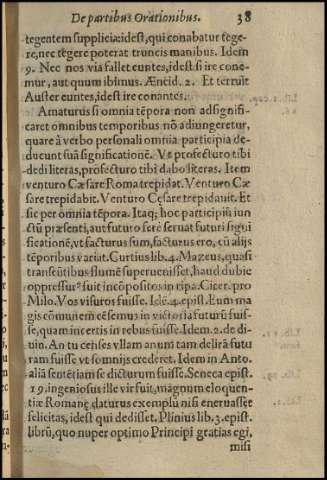 De partibus Orationibus. 38
tegentem supplicia: idest, qui conabatur tẽge-
re, nec tẽgere poterat truncis manibus. Idem
9. Nec nos via fallet euntes, idest si ire cone-
mur, aut quum ibimus. Æneid. 2. Et terruit
Auster euntes, idest ire conantes.
Amaturus si omnia tẽpora non adsignifi-
caret omnibus temporibus nõ adiungeretur,
quare à verbo personali omnia participia de-
ducunt suã significationẽ. Vt profecturo tibi
dedi literas, profecturo tibi dabo literas. Item
venturo Cæsare Roma trepidat. Venturo Cæ
sare trepidabit. Venturo Cęsare trepidauit. Et
sic per omnia tẽpora. Itaq; hoc participiũ iun
ctũ præsenti, aut futuro ferè seruat futuri signi
ficationẽ, vt facturus sum, facturus ero, cũ alijs
tẽporibus variat. Curtius lib. 4. Mazeus, quasi
transeũtibus flumẽ superuenisset, haud dubiè
oppressurꝰ fuit incõpositos in ripa. Cicer. pro
Milo. Vos visuros fuisse. Idẽ 4. epist. Eum ma
gis cõmunem cẽsemus in victoria futurũ fuis-
se, quam incertis in rebus fuisse. Idem 2. de di
uin. An tu censes vllam anum tam delirã futu
ram fuisse vt somnijs crederet. Idem in Anto.
aliã sentẽtiam se dicturum fuisse. Seneca epist.
19. ingeniosus ille vir fuit, magnum eloquen-
tiæ Romanę daturus exemplũ nisi eneruasset
felicitas, idest qui dedisset. Plinius lib. 3. epist.
librũ, quo nuper optimo Principi gratias egi,
misi